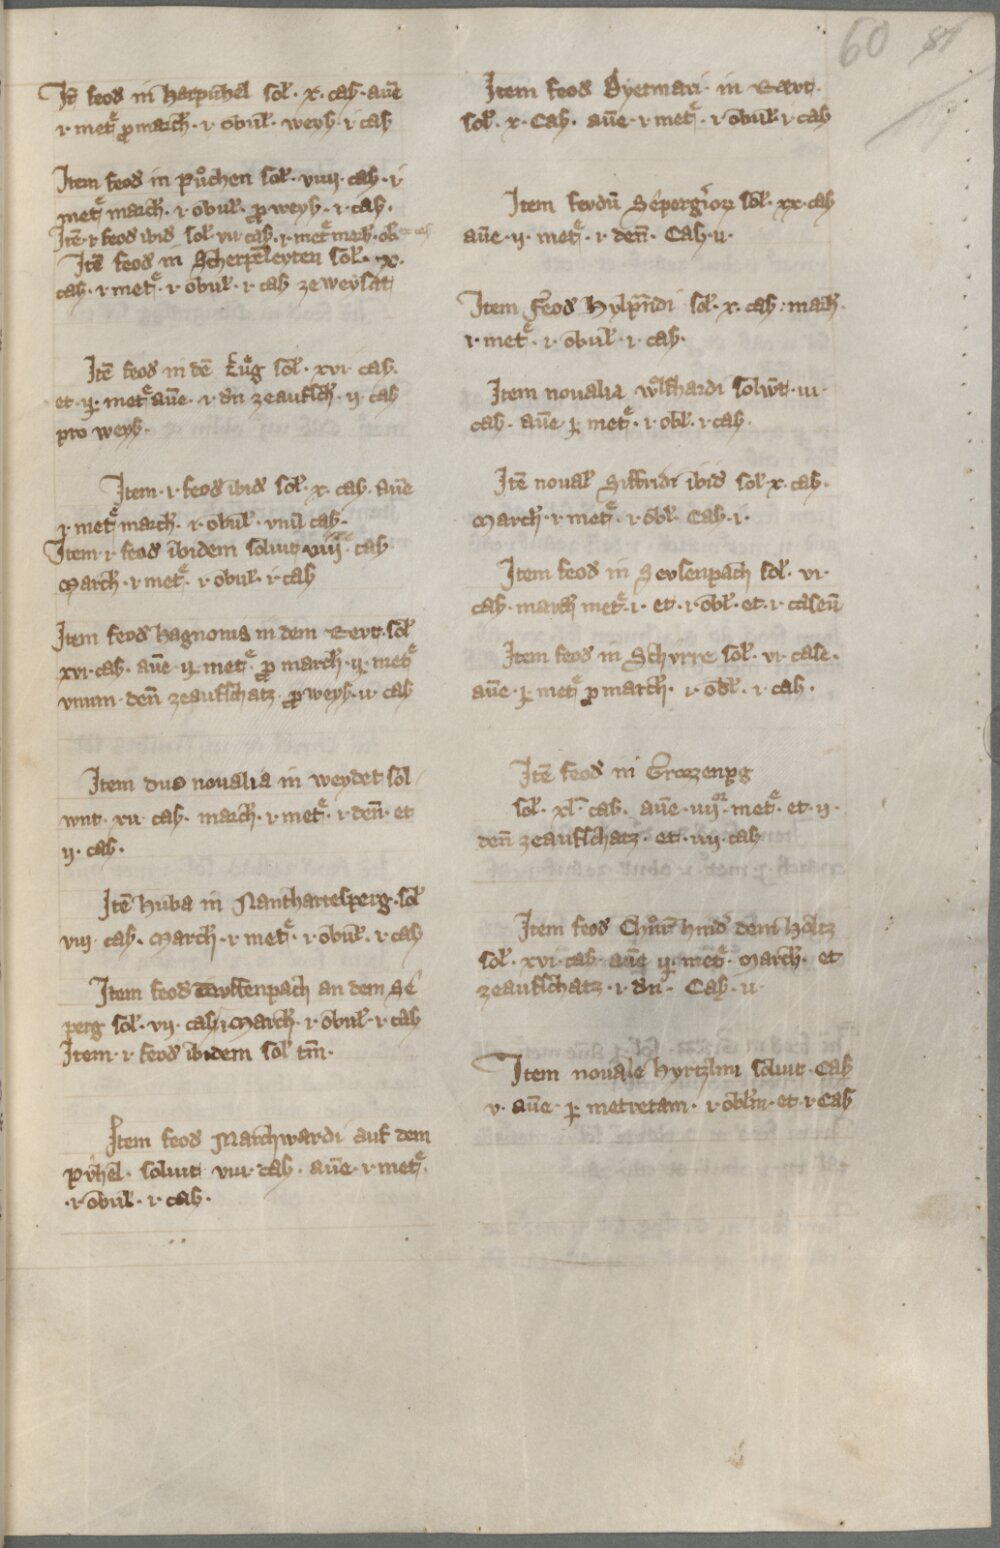 60 81
Itē feod in harpichel sol̄. x. cas. auē
i. metͤ p̱ march̄. i. obul̄. weys. i. cas
Item feod in půchen sol̄. viiij. cas. i
metͤ march̄. i. obul̄. p̱ weys. i. cas.
Itē. i. feod ibid sol̄. vii. cas. i. metͤ march̄. ob
Itē feod in Scherpēleyten sol̄. ix.
cas. i. metͤ. i. obul̄. i. cas ze weysat
Itē feod in dē sol̄. xvi. cas.
et. ij. metͤ auē. i. dn̄ zeaufsch̄. ij. cas
pro weys.
Item. i. feod ibid sol̄. x. cas. auē
i. metͤ march̄. i. obul̄. vnū cas.
Item. i. feod ibidem soluit viiij. cas.
march̄. i. metͤ. i. obul̄. i. cas
Item feod hagnonis in dem Gevt. sol̄
xvi. cas. auē ij. metͤ. p̱ march̄. ij. metͤ
vnum. den̄ zeaufschatz. p̱ weys. ii. cas
Item duo noualia in weydet sol
wnt. xii. cas. march̄. i. metͤ. i. den̄. et
ij. cas.
Itē huba in Nanthartesperg. sol̄
viij. cas. March̄. i. metͤ. i. obul̄. i. cas
Item feod an dem Sē
perg sol̄. vij. cas. march̄. i. obul̄. i. cas
Item. i. feod ibidem sol̄ tm̄.
Item feod Marchwardi auf dem
pvhēl. soluit viii. cas. auē. i. metͤ.
. i. obul̄. i. cas.
Item feod Dyetmari in Gevt.
sol̄. x. Cas. auē. i. metͤ. i. obul̄. i. cas
Item feodū sol̄. xx. cas
auē. ij. metͤ. i. den̄. Cas. ii.
Item Feod sol̄. x. cas. march̄.
i. metͤ. i. obul̄. i. cas.
Item noualia solw̄t. iii.
cas. auē. metͤ. i. obl̄. i. cas.
Itē noual̄ Siffridi ibid sol̄ x. cas.
March̄. i. metͤ. i. obl̄. Cas. i.
Item feod in Sevsenpach sol̄. vi.
cas. march̄ metͤ. i. et. i. obl̄. et. i. caseū
Item feod in Schyrre sol̄. vi. case.
auē. metͤ p̱ march̄. i. obl̄. i. cas.
Itē feod in Grozzenpg
sol̄. xl. cas. auē. iiij. metͤ. et. ij.
den̄ zeaufschatz. et. iiij. cas
Item feod hind̄ dem holtz
sol̄. xvi. cas auē ij. metͤ. March̄. et
zeaufschatz. i. dn̄. Cas. ii.
Item nouale hyrtzlini soluit. Cas
v. auē. metretam. i. obl̄m. et. i. Cas